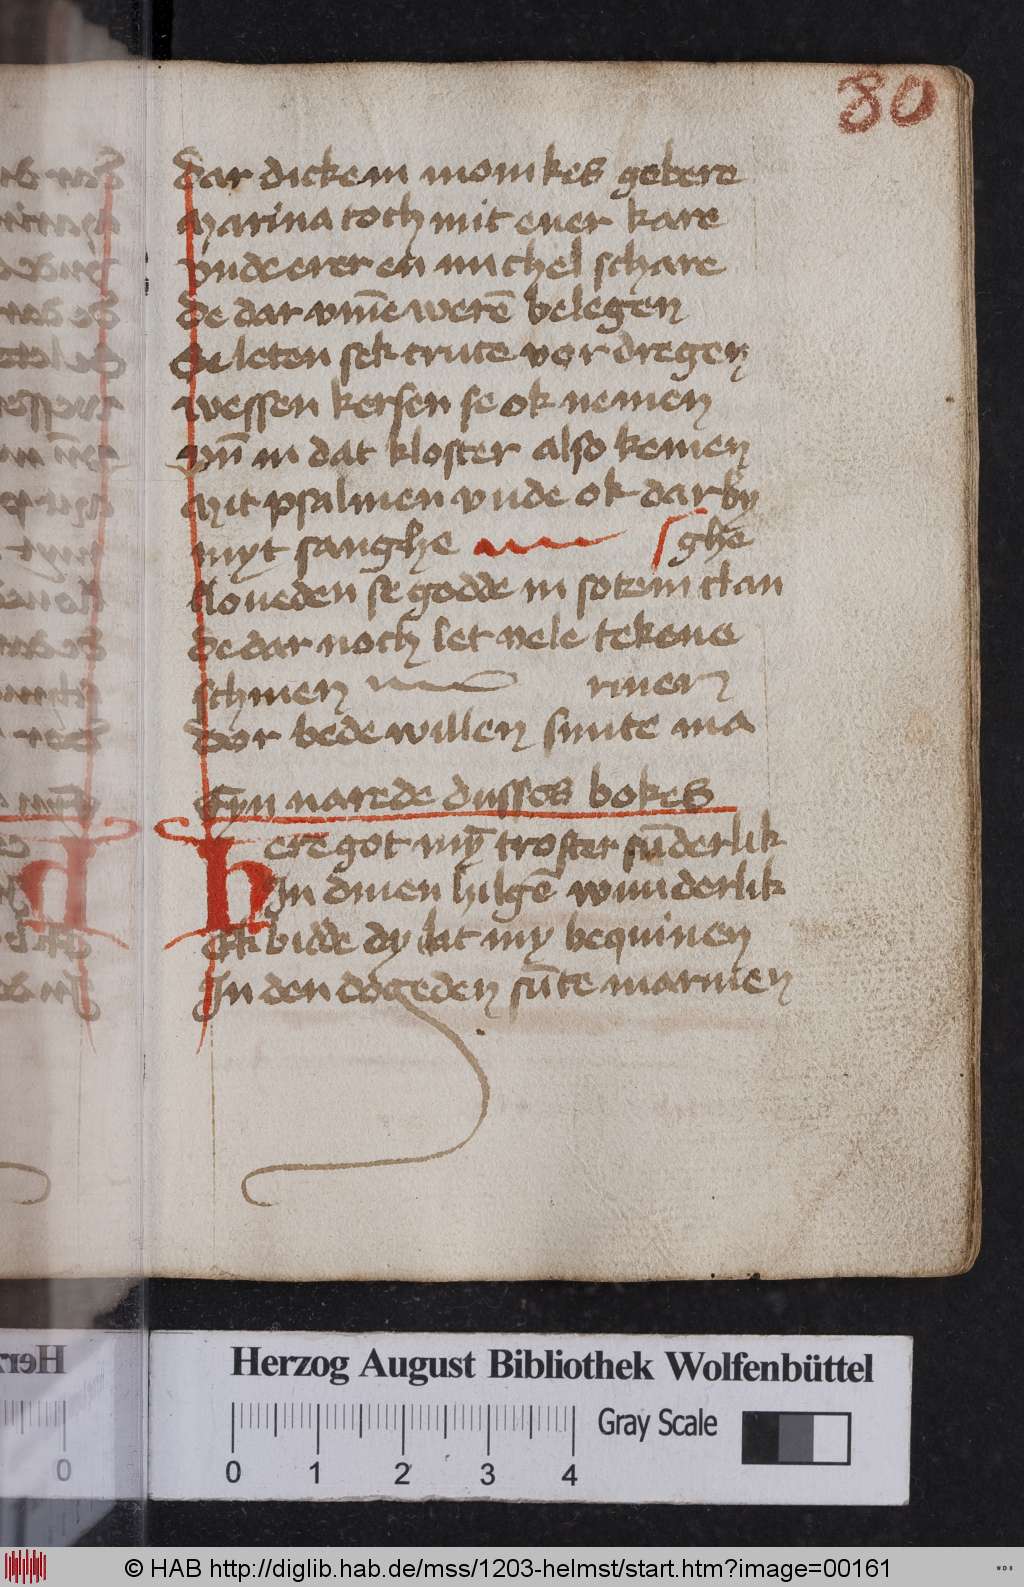 80
dar dicke in monikes gebere
Marina toch mit ener kare
vnde erer en michel schare
de dar vm̄e werē belegen
Se leten sek trute vor dregen
wessen kersen se ok nemen
vn̄ in dat kloster also kemen
Mit psalmen vnde ok dar by
myt sanghe ghe
loueden se godde in sotem clan
de dar noch let vele tekene
schinen rinen
dor bede willen sinte ma
Eyn narede dusses bokes
Here got my̅ troster sūderlik
In dinen hilgē wunderlik
Ek bidde dy lat my bequinen
In den dogeden sūte marinen
Herzog August Bibliothek Wolfenbüttel
Gray Scale
0 1 2 3 4
© HAB http://diglib.hab.de/mss/1203-helmst/start.htm?image=00161